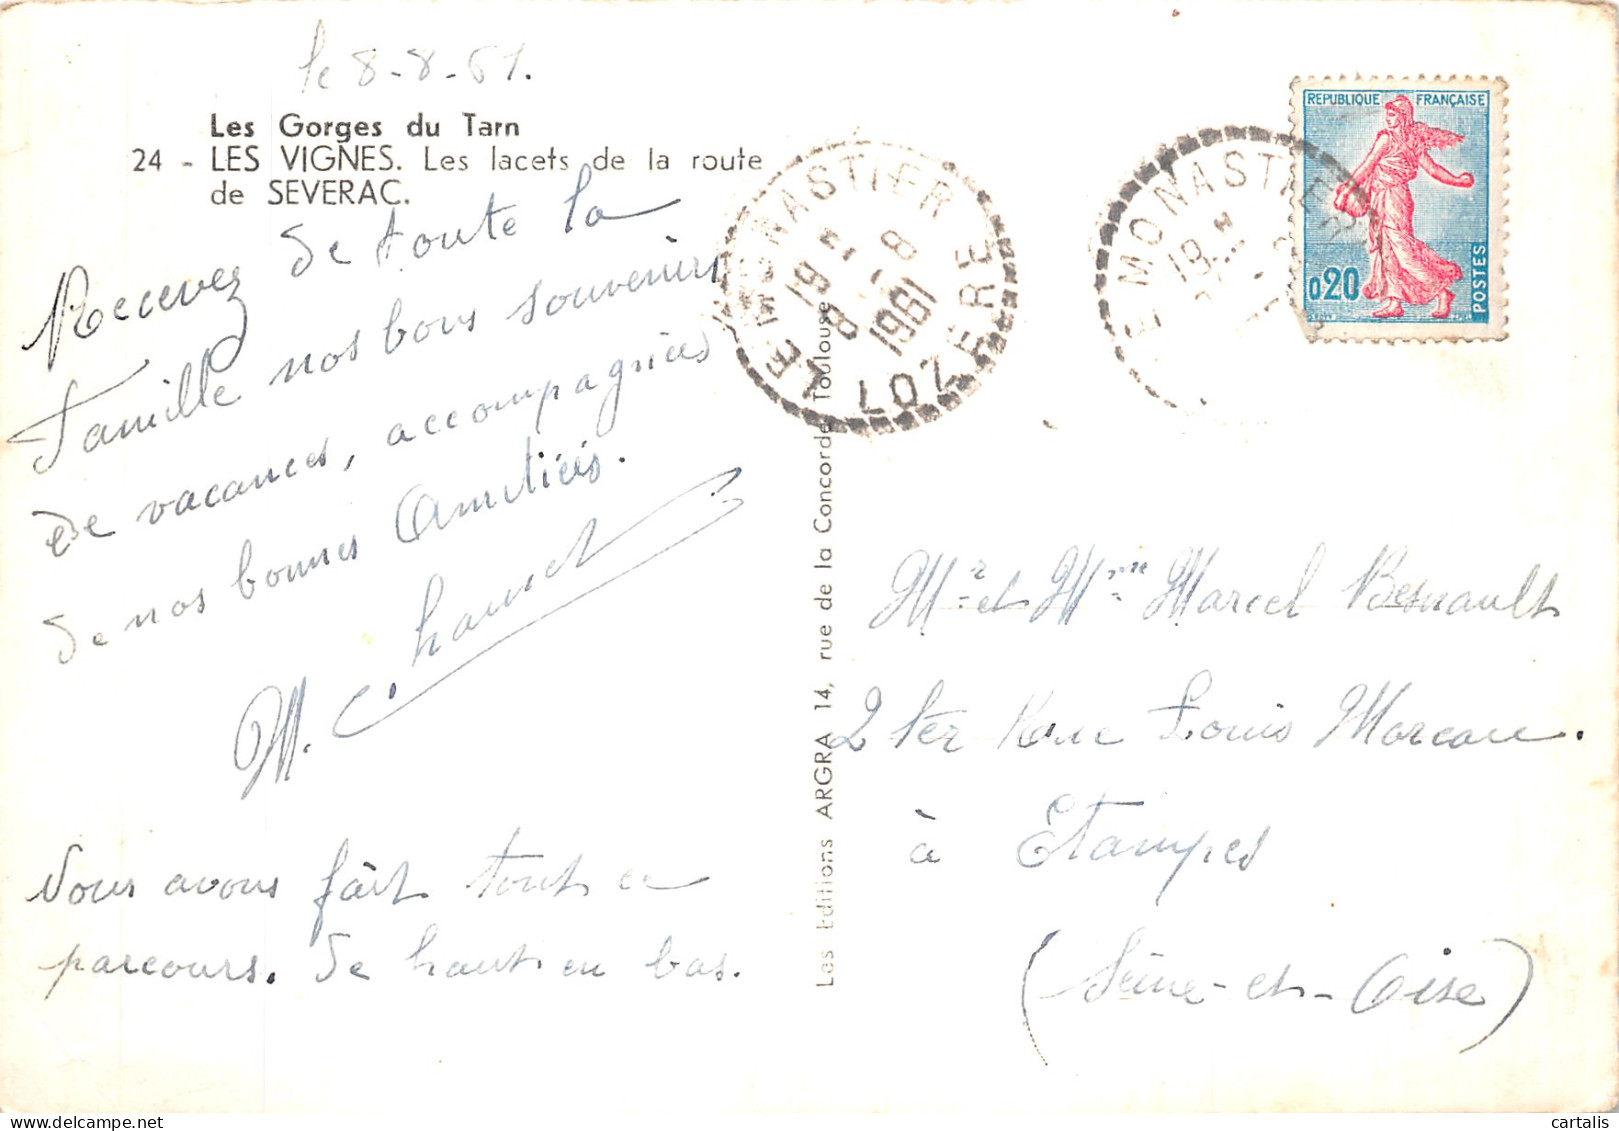 le 8-8-61.
Les Gorges du Tarn
24 - LES VIGNES. Les lacets de la route
de SEVERAC.
Recevez de toute la
famille nos bons souvenirs
de vacances, accompagnées
de nos bonnes Amitiés.
M. Chamet
Nous avons fait tout ce
parcours. de haut en bas.
Les Editions ARGRA 14, rue de la Concorde Toulouse
LE MONASTIER
19 H
8 - 8
1961
LOZERE
LE MONASTIER
19 H
REPUBLIQUE FRANÇAISE
0,20
POSTES
Mr et Mme Marcel Besnault
2 ter Rue Louis Moreau.
à Etampes
(Seine-et-Oise)
cartalis